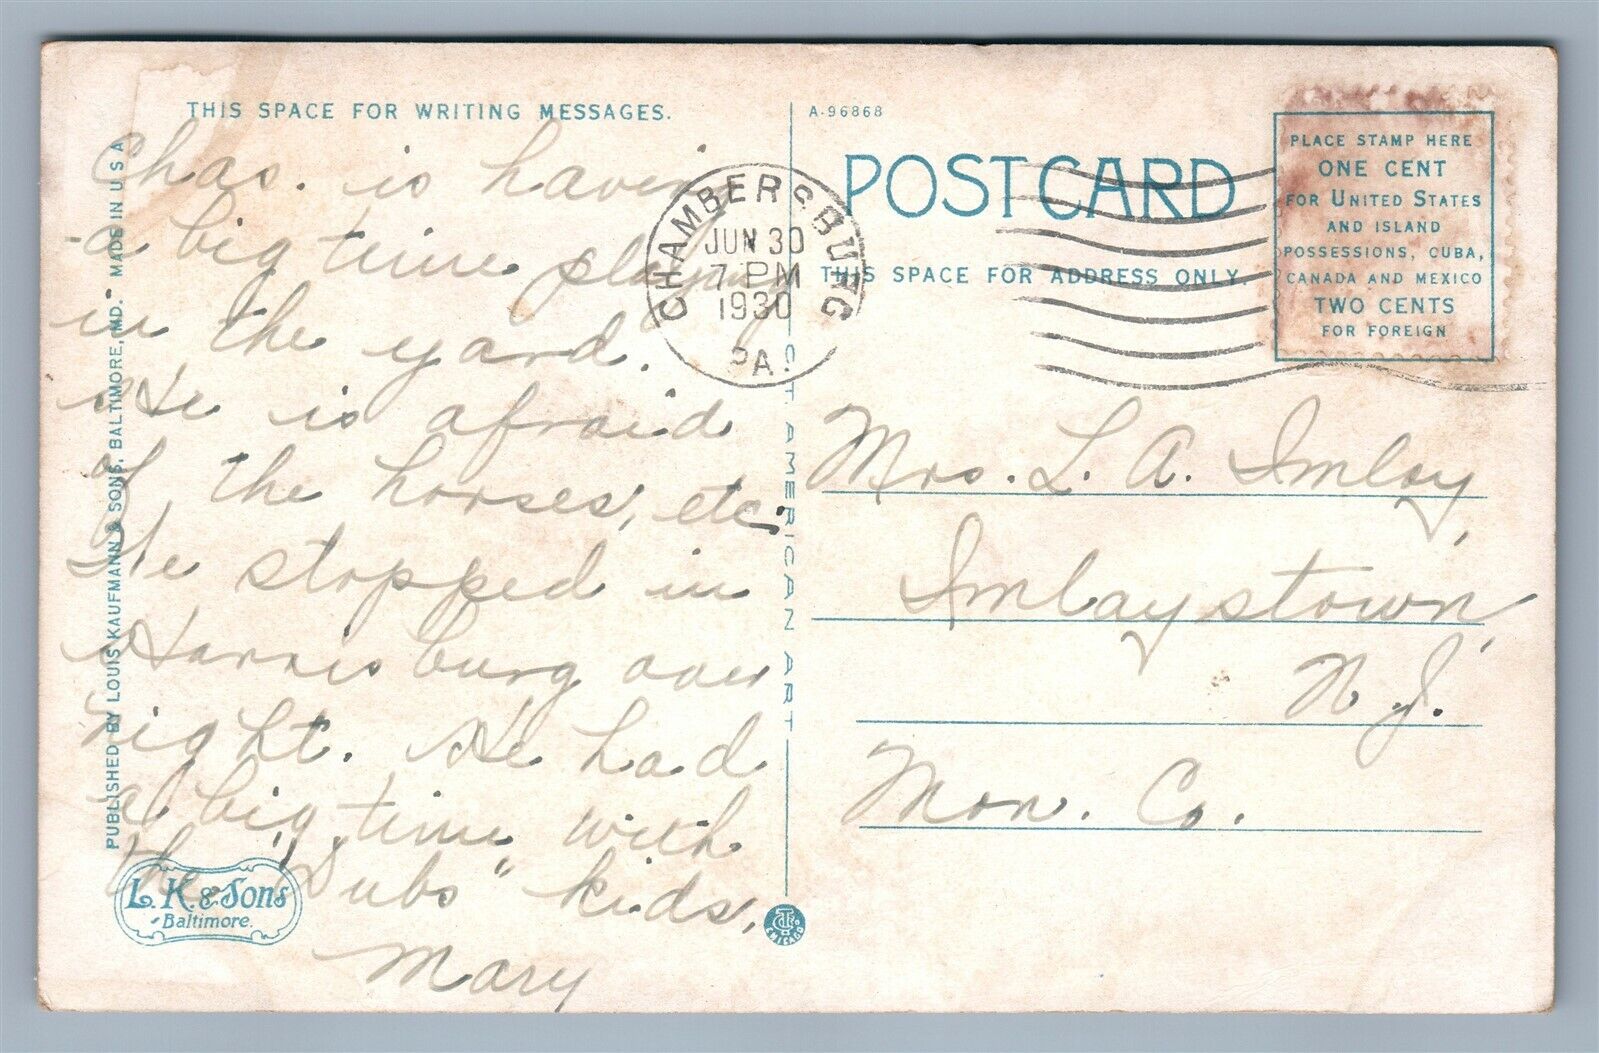 THIS SPACE FOR WRITING MESSAGES.
Chas. is having
a big time playing
in the yard.
He is afraid
of the horses, etc.
We stopped in
Harrisburg over
night. He had
a big time with
the "Dubs" kids.
Mary
PUBLISHED BY LOUIS KAUFMANN & SONS, BALTIMORE, MD. MADE IN U S A
L. K. & Sons
Baltimore.
CHAMBERSBURG
JUN 30
7 PM
1930
PA.
C.T. AMERICAN ART
CHICAGO
A-96868
POST CARD
THIS SPACE FOR ADDRESS ONLY.
PLACE STAMP HERE
ONE CENT
FOR UNITED STATES
AND ISLAND
POSSESSIONS, CUBA,
CANADA AND MEXICO
TWO CENTS
FOR FOREIGN
Mrs. L. A. Imlay,
Imlaystown,
N. J.
Mon. Co.